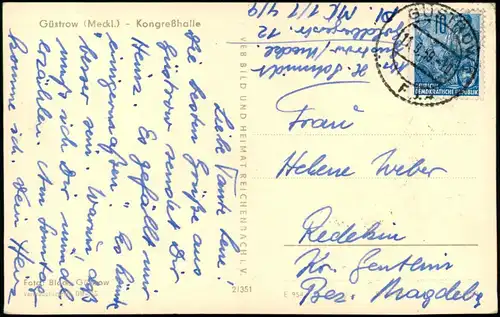 Güstrow (Meckl.) - Kongreßhalle
Liebe Tante Lene!
Die besten Grüße aus
Güstrow sendet Dir
Heinz. Es gefällt mir
"einigermaßen". Es könnte
besser sein. Warum, das
muß ich Dir mündl.
erzählen. Am Sonntag
komme ich. Dein Heinz
VEB BILD UND HEIMAT REICHENBACH I. V.
Foto: Güstrow
2/351
E 954
H. Schmidt
Güstrow/Meckl.
GÜSTROW
10
DEUTSCHE
DEMOKRATISCHE REPUBLIK
Frau
Helene Weber
Redekin
Kr. Genthin
Bez. Magdeburg